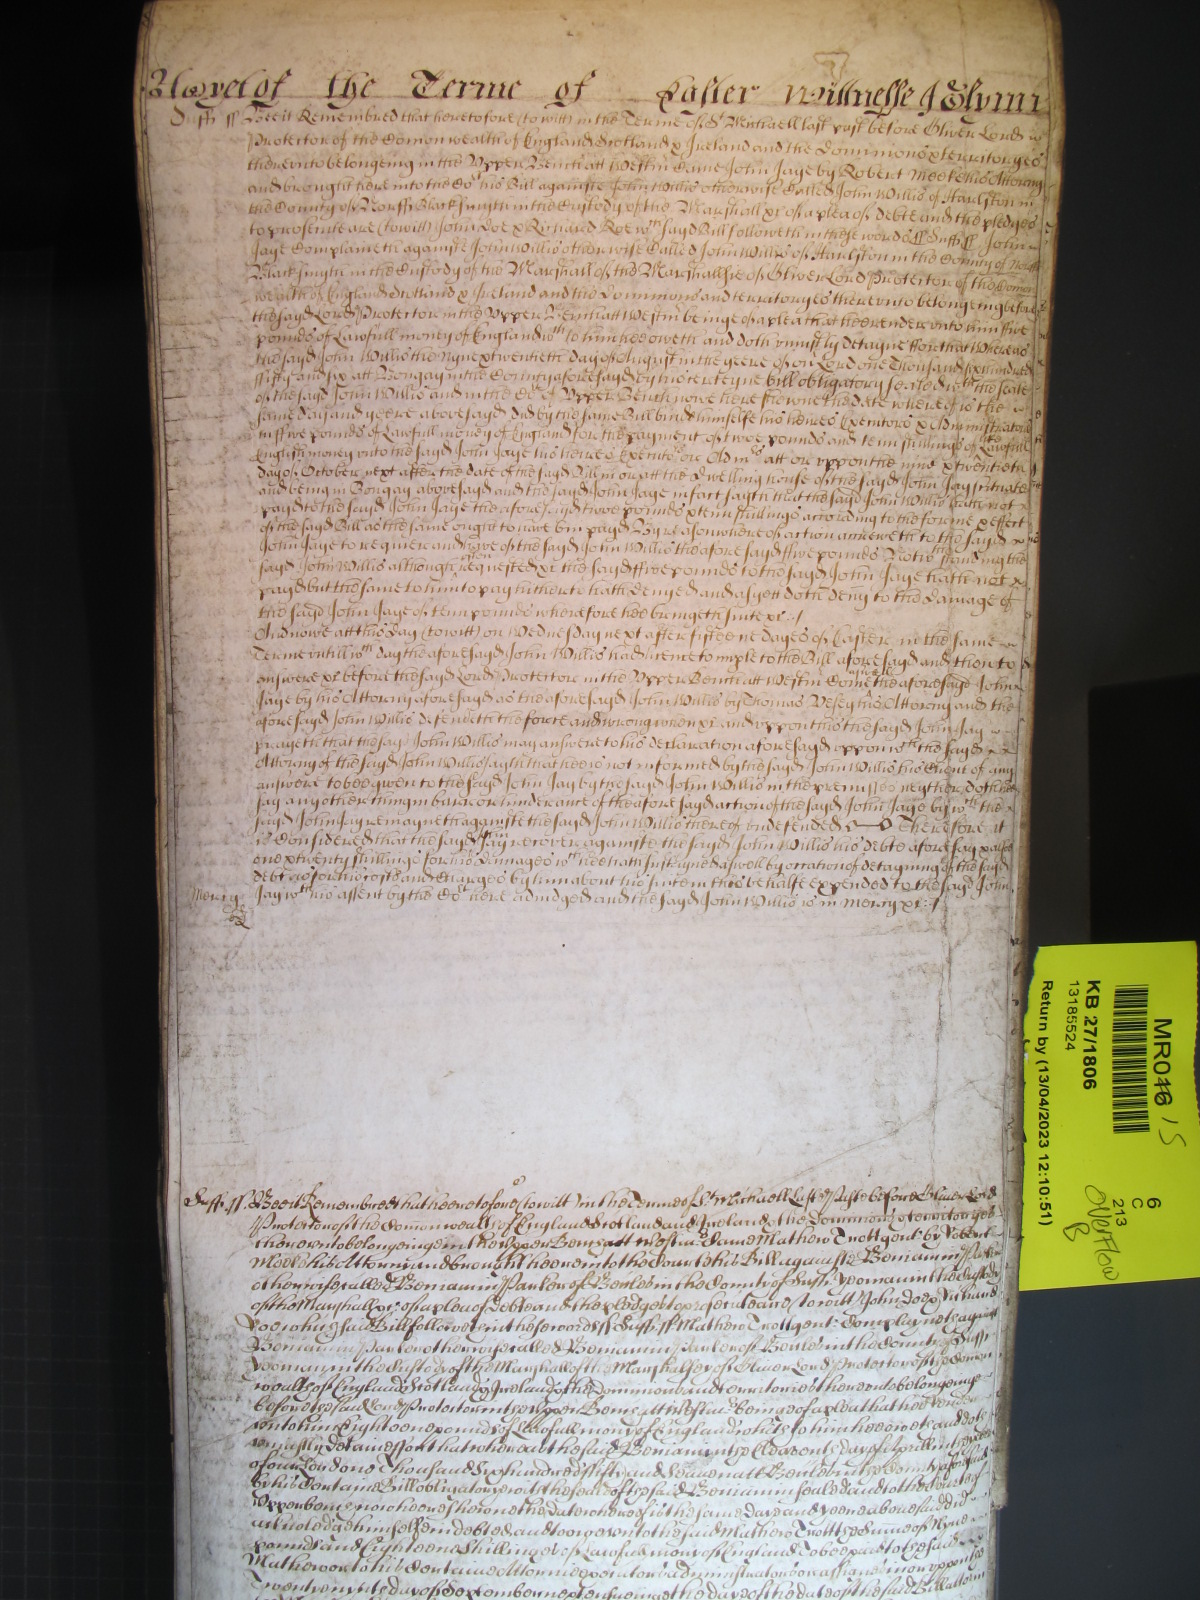 Yet of the Terme of Easter Willnesse J Glynn
Suff ss Bee it Remembred that heretofore (to witt) in the Terme of St Michaell last past before Oliver Lord
Protector of the Comonwealth of England Scotland & Ireland and the Dominions & territoryes
thereunto belongeing in the Upper Bench att Westm Came John Jaye by Robert Meeke his Attorny
and brought here into the Cot his Bill againste John Willis otherwise Called John Willis of Harlston in
the County of Norff Blacksmyth in the Custody of the Marshall &c of a plea of debte and the pledges
to prosecute are (to witt) John Doe & Richard Roe wch sayd Bill followeth in these words ss Suff ss John
Jaye Complaineth againste John Willis otherwise Called John Willis of Harlston in the County of Norff
Blacksmyth in the Custody of the Marshall of the Marshallsie of Oliver Lord Protector of the Comon
wealth of England Scotland & Ireland and the Dominions and territoryes thereunto belongeing before
the sayd Lord Protector in the Upper Bench att Westm beinge of a plea that hee render unto him five
pounds of Lawfull money of England wch to him hee oweth and doth uniustly detayne ffor that Whereas
the sayd John Willis the nyne & twentieth day of August in the yeere of or Lord one Thousand six hundred
ffifty and six att Bongay in the County aforesayd by his certeyne bill obligatory sealed wth the seale
of the sayd John Willis and in the Cot of Upper Bench nowe here shewne the date whereof is the
same day and yeere abovesayd did by the same Bill bind himselfe his heires Executors & Administrators
in ffive pounds of Lawfull money of England for the payment of twoe pounds and tenn shillings of like Lawfull
English money unto the sayd John Jaye his heires Executors or Adm att or uppon the nine & twentieth
day of October next after the date of the sayd Bill in or att the dwelling house of the sayd John Jay situate
and being in Bongay abovesayd and the sayd John Jaye in fact sayth that the sayd John Willis hath not
payd to the sayd John Jaye the aforesayd twoe pounds & tenn shillings according to the forme & effect
of the sayd Bill as the same ought to have bin payd By reason whereof action accreweth to the sayd
John Jaye to requier and have of the sayd John Willis the aforesayd ffive pounds Notwthstanding the
sayd John Willis although often requested &c the sayd ffive pounds to the sayd John Jaye hath not
payd but the same to him to pay hitherto hath denyed and as yett doth deny to the damage of
the sayd John Jaye of tenn pounds wherefore hee bringeth suite &c
And nowe att this day (to witt) on Wednesday next after fifteene dayes of Easter in the same
Terme untill wch day the aforesayd John Willis had licence to imple to the Bill aforesayd and then to
answere &c before the sayd Lord Protector in the Upper Bench att Westm Come as well the aforesayd John
Jaye by his Attorny aforesayd as the aforesayd John Willis by Thomas Vesey his Attorny and the
aforesayd John Willis defendeth the force and wrong when &c and uppon this the sayd John Jay
prayeth that the sayd John Willis may answere to his declaration aforesayd uppon wch the sayd
Attorny of the sayd John Willis sayth that hee is not informed by the sayd John Willis his Client of any
answere to bee given to the sayd John Jay by the sayd John Willis in the premisses neyther doth hee
say any other thing in barre or hinderance of the aforesayd action of the sayd John Jaye by wch the
sayd John Jay remayneth againste the sayd John Willis thereof undefended Therefore it
is Considered that the sayd John Jay recover againste the sayd John Willis his debte aforesayd
one & twenty shillings for his damages wch hee hath susteyned aswell by occation of detayning of the sayd
debt as for his costs and Charges by him about his suite in this behalfe expended to the sayd John
Jay wth his assent by the Cot here adiudged and the sayd John Willis is in Mercy &c
Mercy
Suff ss Bee it Remembred that heretofore (to witt) in the Terme of St Michaell Last Past before Oliver Lord
Protector of the Comonwealth of England Scotland and Ireland & the Dominions & territoryes
thereunto belongeinge in the Upper Bench att Westm Came Mathew Trott gent by Robert
Meeke his Attorny and brought here into the Court his Bill againste Beniamin Parler
otherwise called Beniamin Parler of Becles in the County of Suff yeoman in the Custody
of the Marshall &c of a plea of Debte and the pledges to prosecute are (to witt) John Doe & Richard
Roe which said Bill followeth in these words ss Suff ss Mathew Trott gent Complayneth against
Beniamin Parler otherwise called Beniamin Parler of Becles in the County of Suff
Yeoman in the Custody of the Marshall of the Marshalsey of Oliver Lord Protector of the Comon
wealth of England Scotland & Ireland & the Dominions and territories thereunto belongeinge
before the said Lord Protector in the Upper Bench att Westm beinge of a plea that hee render
unto him Eighteene pounds of Lawfull mony of England which to him hee oweth and doth
uniustly Detaine ffor that whereas the said Beniamin the Eleaventh day of Aprill in the yeare
of our Lord one Thousand six hundred ffifty and Seaven att Becles in the County aforesaid
by his Certaine Bill obligatory with the seale of the said Beniamin sealed and to the Court of
Upper bench nowe here shewne the date whereof is the same day and yeere abovesaid did
acknoledge himselfe indebted and to owe unto the said Mathew Trott the Summe of Nyne
pounds and Eighteene Shillinges of Lawfull mony of England To bee paid to the said
Mathew or to his Certaine Attornie executors administrators or assignes in or uppon the
Twentynynth day of September next ensueinge the day of the date of the said Bill att or in
MR018
15
KB 27/1806
13185524
Return by (13/04/2023 12:10:51)
6
C
213
Overflow
B